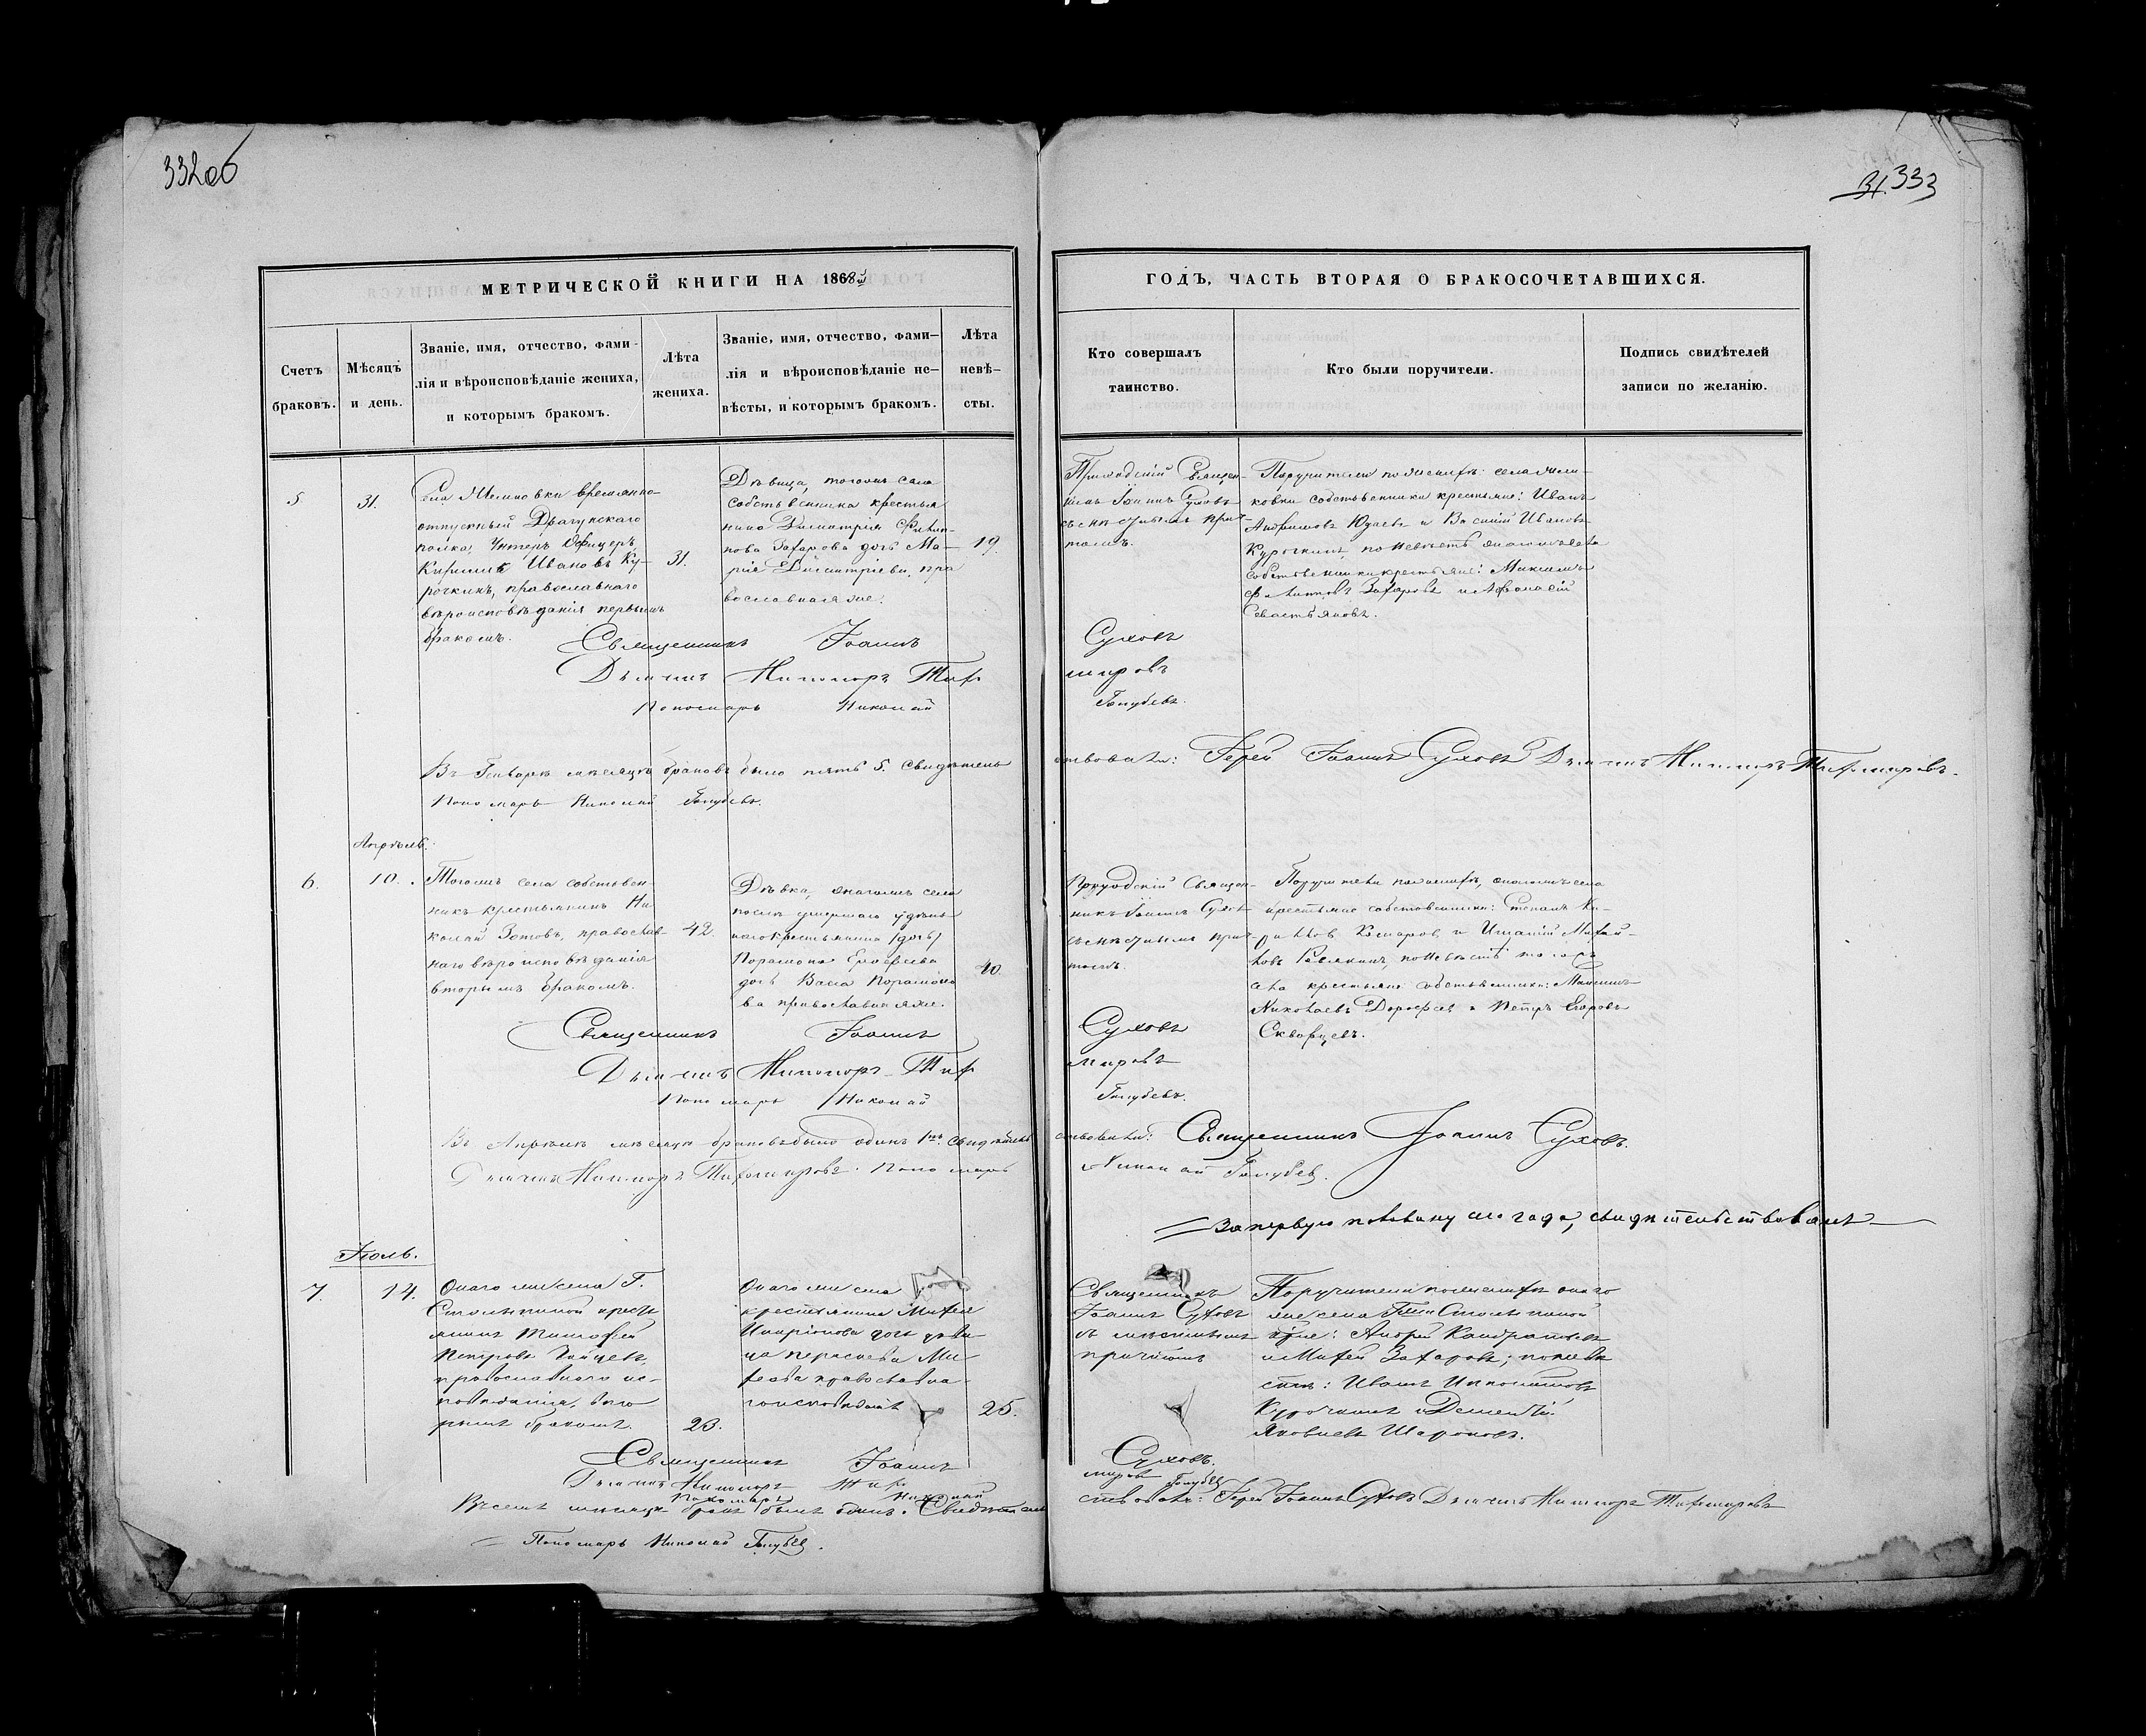 332об
31. 333
МЕТРИЧЕСКОЙ КНИГИ НА 1868й
ГОДЪ, ЧАСТЬ ВТОРАЯ О БРАКОСОЧЕТАВШИХСЯ.
Счетъ
браковъ.
Мѣсяцъ
и день.
Званіе, имя, отчество, фами-
лія и вѣроисповѣданіе жениха,
и которымъ бракомъ.
Лѣта
жениха.
Званіе, имя, отчество, фами-
лія и вѣроисповѣданіе не-
вѣсты, и которымъ бракомъ.
Лѣта
невѣ-
сты.
Кто совершалъ
таинство.
Кто были поручители.
Подпись свидѣтелей
записи по желанію.
5
31.
Села временно-
отпускный Драгунскаго
полка, Унтеръ Офицеръ
Кириллъ Ивановъ Ку-
рочкинъ, православнаго
вѣроисповѣданія первымъ
бракомъ.
31.
Дѣвица, тогожъ села
собственника крестья
нина Димитрія Филип-
пова Захарова дочь Ма-
рія Димитріева, пра
вославная же.
19.
Приходскій Священ-
никъ Іоаннъ Суховъ
съ мѣстнымъ прич-
томъ.
Поручители по женихѣ: села
собственники крестьяне: Иванъ
и Василій Ивановъ
Курочкинъ, по невѣстѣ онагожъ села
собственники крестьяне: Максимъ
Филиповъ Захаровъ и Афанасій
Севастьяновъ.
Священникъ Іоаннъ
Суховъ
Дьячекъ Никаноръ Тих
мировъ
Пономарь Николай
Голубевъ.
Въ Генварѣ мѣсяцѣ браковъ было пять 5. Свидѣтель
ствовали: Іерей Іоаннъ Суховъ Дьячекъ Никаноръ Тихомировъ.
Пономарь Николай Голубевъ.
Апрѣль.
6.
10.
Тогожъ села собствен-
никъ крестьянинъ Ни
колай Зотовъ, православ
наго вѣроисповѣданія
вторымъ бракомъ.
42.
Дѣвка, онагожъ села
послѣ умершаго удѣль
наго крестьянина (дочь)
Парамона Ерофеева
дочь Васа Парамоно
ва православная же.
40.
Приходскій Священ-
никъ Іоаннъ Сухов
съ мѣстнымъ прич-
томъ.
Поручители по женихѣ, онагожъ села
крестьяне собственники: Степанъ Ки-
риловъ Комаровъ и Игнатій Михай-
ловъ, по невѣстѣ тогожъ
села крестьяне собственники: Максимъ
Николаевъ Дорофеев и Петръ Егоровъ
Скворцевъ.
Священникъ Іоаннъ
Суховъ
Дьячекъ Никаноръ Тих
мировъ
Пономарь Николай
Голубевъ.
Въ Апрѣлѣ мѣсяцѣ браковъ было одинъ 1нъ. свидѣтель
ствовали: Священникъ Іоаннъ Суховъ.
Дьячекъ Никаноръ Тихомировъ. Пономарь
Николай Голубев.
За первую половину сего года, свидетельствовалъ
Іюль.
7.
14.
Онаго же села Г.
Столыпиной кресть
янинъ Тимофей
Петровъ
православнаго ис-
повѣданія, вто
рымъ бракомъ.
23.
Онаго же села
крестьянина Михея
Иларіонова дочь дѣви-
ца Параскева Ми
хеева православна-
го исповѣданія
25.
Священникъ
Іоаннъ Суховъ
съ мѣстнымъ
причтомъ
Поручители по женихѣ онаго
же села Гжи Столыпиной
крѣ: Андрей Кондратьевъ
и Михей Захаровъ; по невѣ
стѣ: Иванъ Ипполитовъ
Курочкинъ и Дементій
Яковлевъ Шароновъ.
Священникъ Іоаннъ
Суховъ.
Дьячекъ Никаноръ Тихо
мировъ
Пономарь Николай
Голубев
Въ семъ мѣсяцѣ бракъ былъ одинъ. Свидѣтель
ствовали: Іерей Іоаннъ Суховъ Дьячекъ Никаноръ Тихомировъ
Пономарь Николай Голубев.